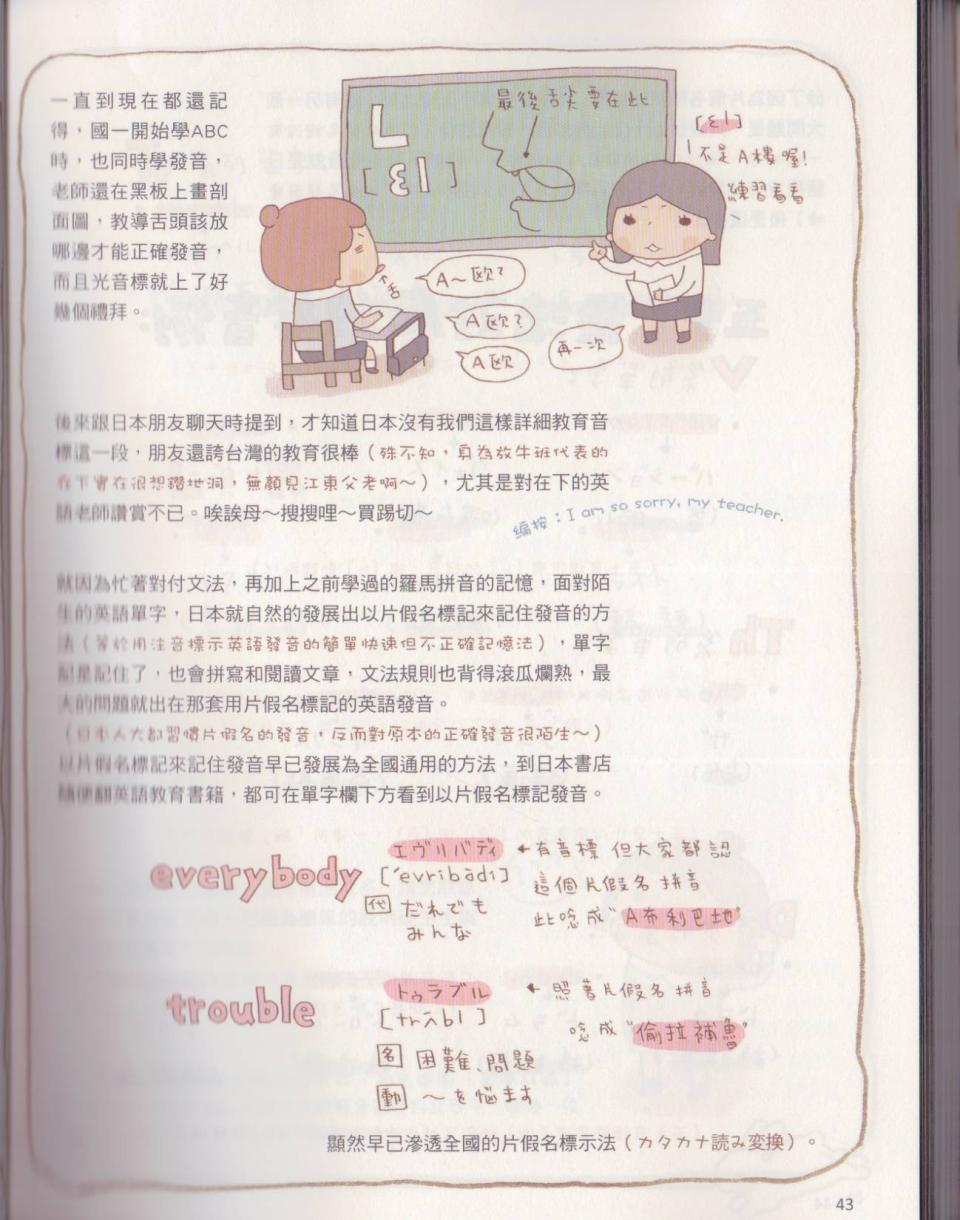 一直到現在都還記
得，國一開始學ABC
時，也同時學發音，
老師還在黑板上畫剖
面圖，教導舌頭該放
哪邊才能正確發音，
而且光音標就上了好
幾個禮拜。
最後舌尖要在此
L
[ɛl]
[ɛl]
不是A樓喔!
練習看看
舌
A～歐?
A歐?
A歐
再一次
後來跟日本朋友聊天時提到，才知道日本沒有我們這樣詳細教育音
標這一段，朋友還誇台灣的教育很棒（殊不知，身為放牛班代表的
在下實在很想鑽地洞，無顏見江東公老啊～），尤其是對在下的英
語老師讚賞不已。唉誒母～搜搜哩～買踢切～
編按：I am so sorry, my teacher.
就因為忙著對付文法，再加上之前學過的羅馬拼音的記憶，面對陌
生的英語單字，日本就自然的發展出以片假名標記來記住發音的方
法（等於用注音標示英語發音的簡單快速但不正確記憶法），單字
記是記住了，也會拼寫和閱讀文章，文法規則也背得滾瓜爛熟，最
大的問題就出在那套用片假名標記的英語發音。
（日本人大都習慣片假名的發音，反而對原本的正確發音很陌生～）
以片假名標記來記住發音早已發展為全國通用的方法，到日本書店
隨便翻英語教育書籍，都可在單字欄下方看到以片假名標記發音。
everybody
エヴリバディ
[ˊevribàdɪ]
代 だれでも
みんな
←有音標 但大家都認
這個片假名拼音
此唸成"A布利巴地"
trouble
トゥラブル
[trʌ́bl]
名 困難、問題
動 ～を悩ます
←照著片假名拼音
唸成"偷拉補魯"
顯然早已滲透全國的片假名標示法（カタカナ読み変換）。
43